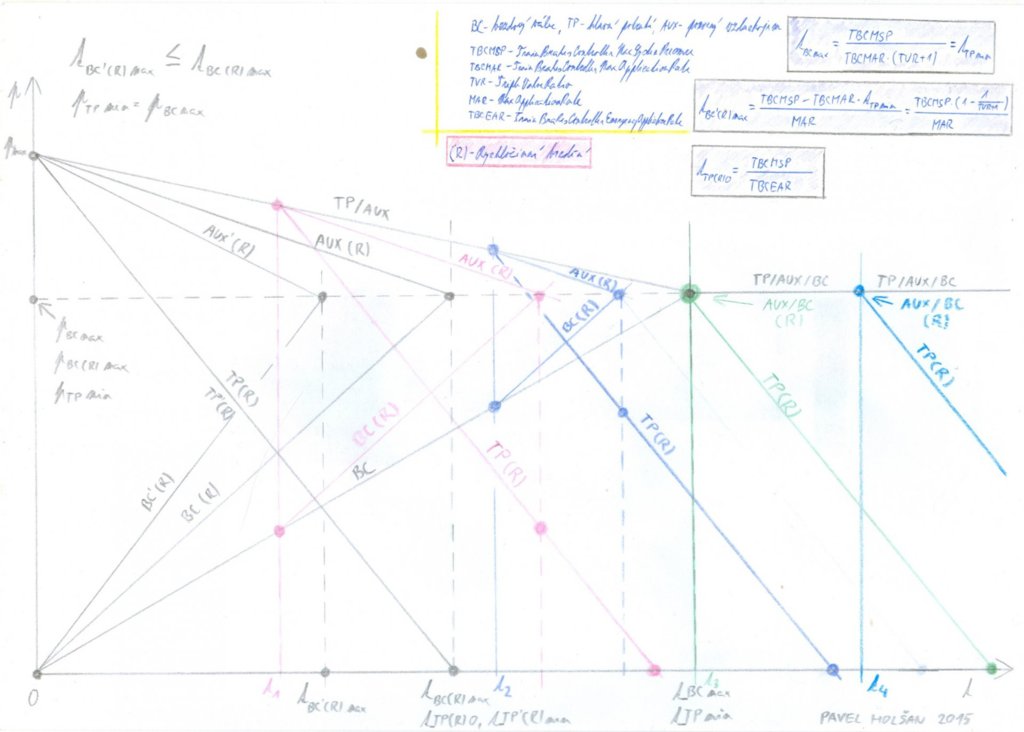 t BC'(R) max ≤ t BC(R) max
p TP min = p BC max
BC - brzdový válec, TP - hlavní potrubí, AUX - pomocný vzduchojem
TBCMSP - Train Brakes Controller Max System Pressure
TBCMAR - Train Brakes Controller Max Application Rate
TVR - Triple Valve Ratio
MAR - Max Application Rate
TBCEAR - Train Brakes Controller Emergency Application Rate
(R) - Rychločinné brzdění
t BC max = TBCMSP / TBCMAR · (TVR+1) = t TP min
t BC'(R) max = TBCMSP - TBCMAR · t TP min / MAR = TBCMSP · (1 - 1/TVR+1) / MAR
t TP(R)0 = TBCMSP / TBCEAR
p
p max
TP/AUX
AUX'(R)
AUX(R)
AUX(R)
AUX(R)
BC(R)
TP/AUX/BC
TP/AUX/BC
AUX/BC
(R)
AUX/BC
(R)
p BC max
p BC(R) max
p TP min
TP(R)
TP'(R)
BC(R)
BC
TP(R)
TP(R)
TP(R)
TP(R)
BC'(R)
BC(R)
0
t1
t BC'(R) max
t BC(R) max
t TP(R)0, t TP'(R) min
t2
t3
t BC max
t TP min
t4
t
PAVEL HOLŠAN 2015